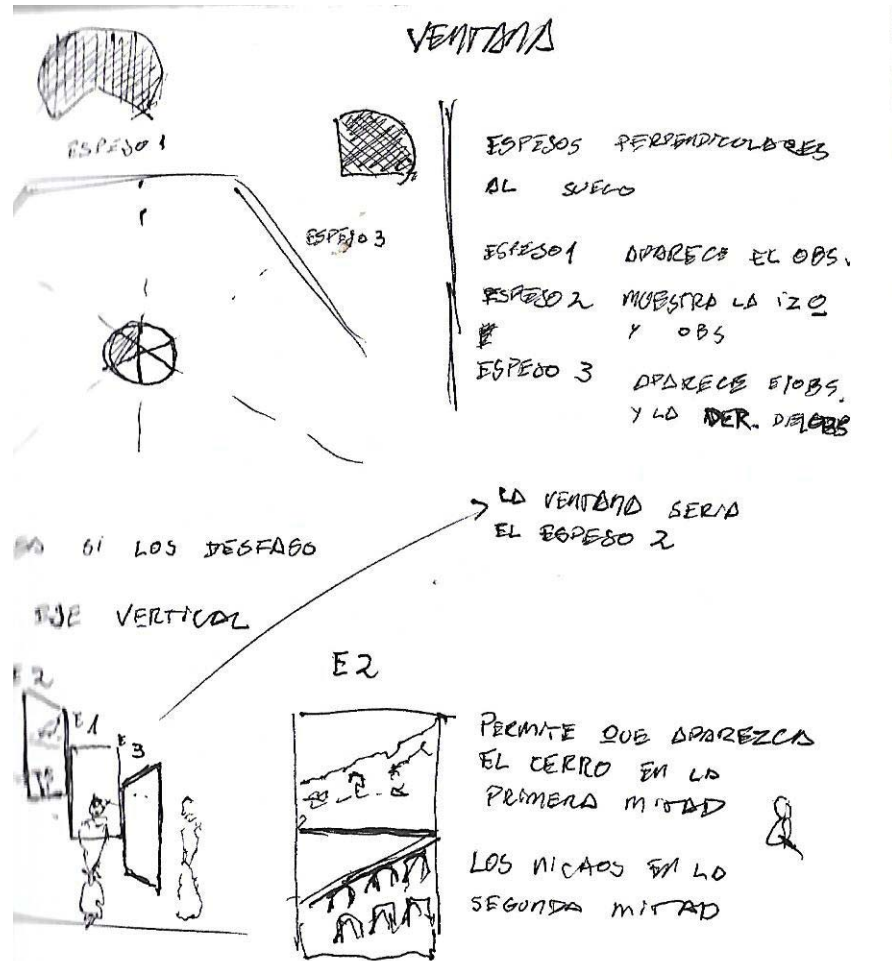 VENTANA
ESPEJO 1
ESPEJO 3
ESPEJOS PERPENDICULARES
AL SUELO
ESPEJO 1 APARECE EL OBS.
ESPEJO 2 MUESTRA LA IZQ
Y OBS
ESPEJO 3 APARECE EL OBS.
Y LA DER. DEL OBS
LA VENTANA SERIA
EL ESPEJO 2
SI LOS DESFASO
EJE VERTICAL
E2
E1
E3
E2
PERMITE QUE APAREZCA
EL CERRO EN LA
PRIMERA MITAD
LOS NICHOS EN LA
SEGUNDA MITAD